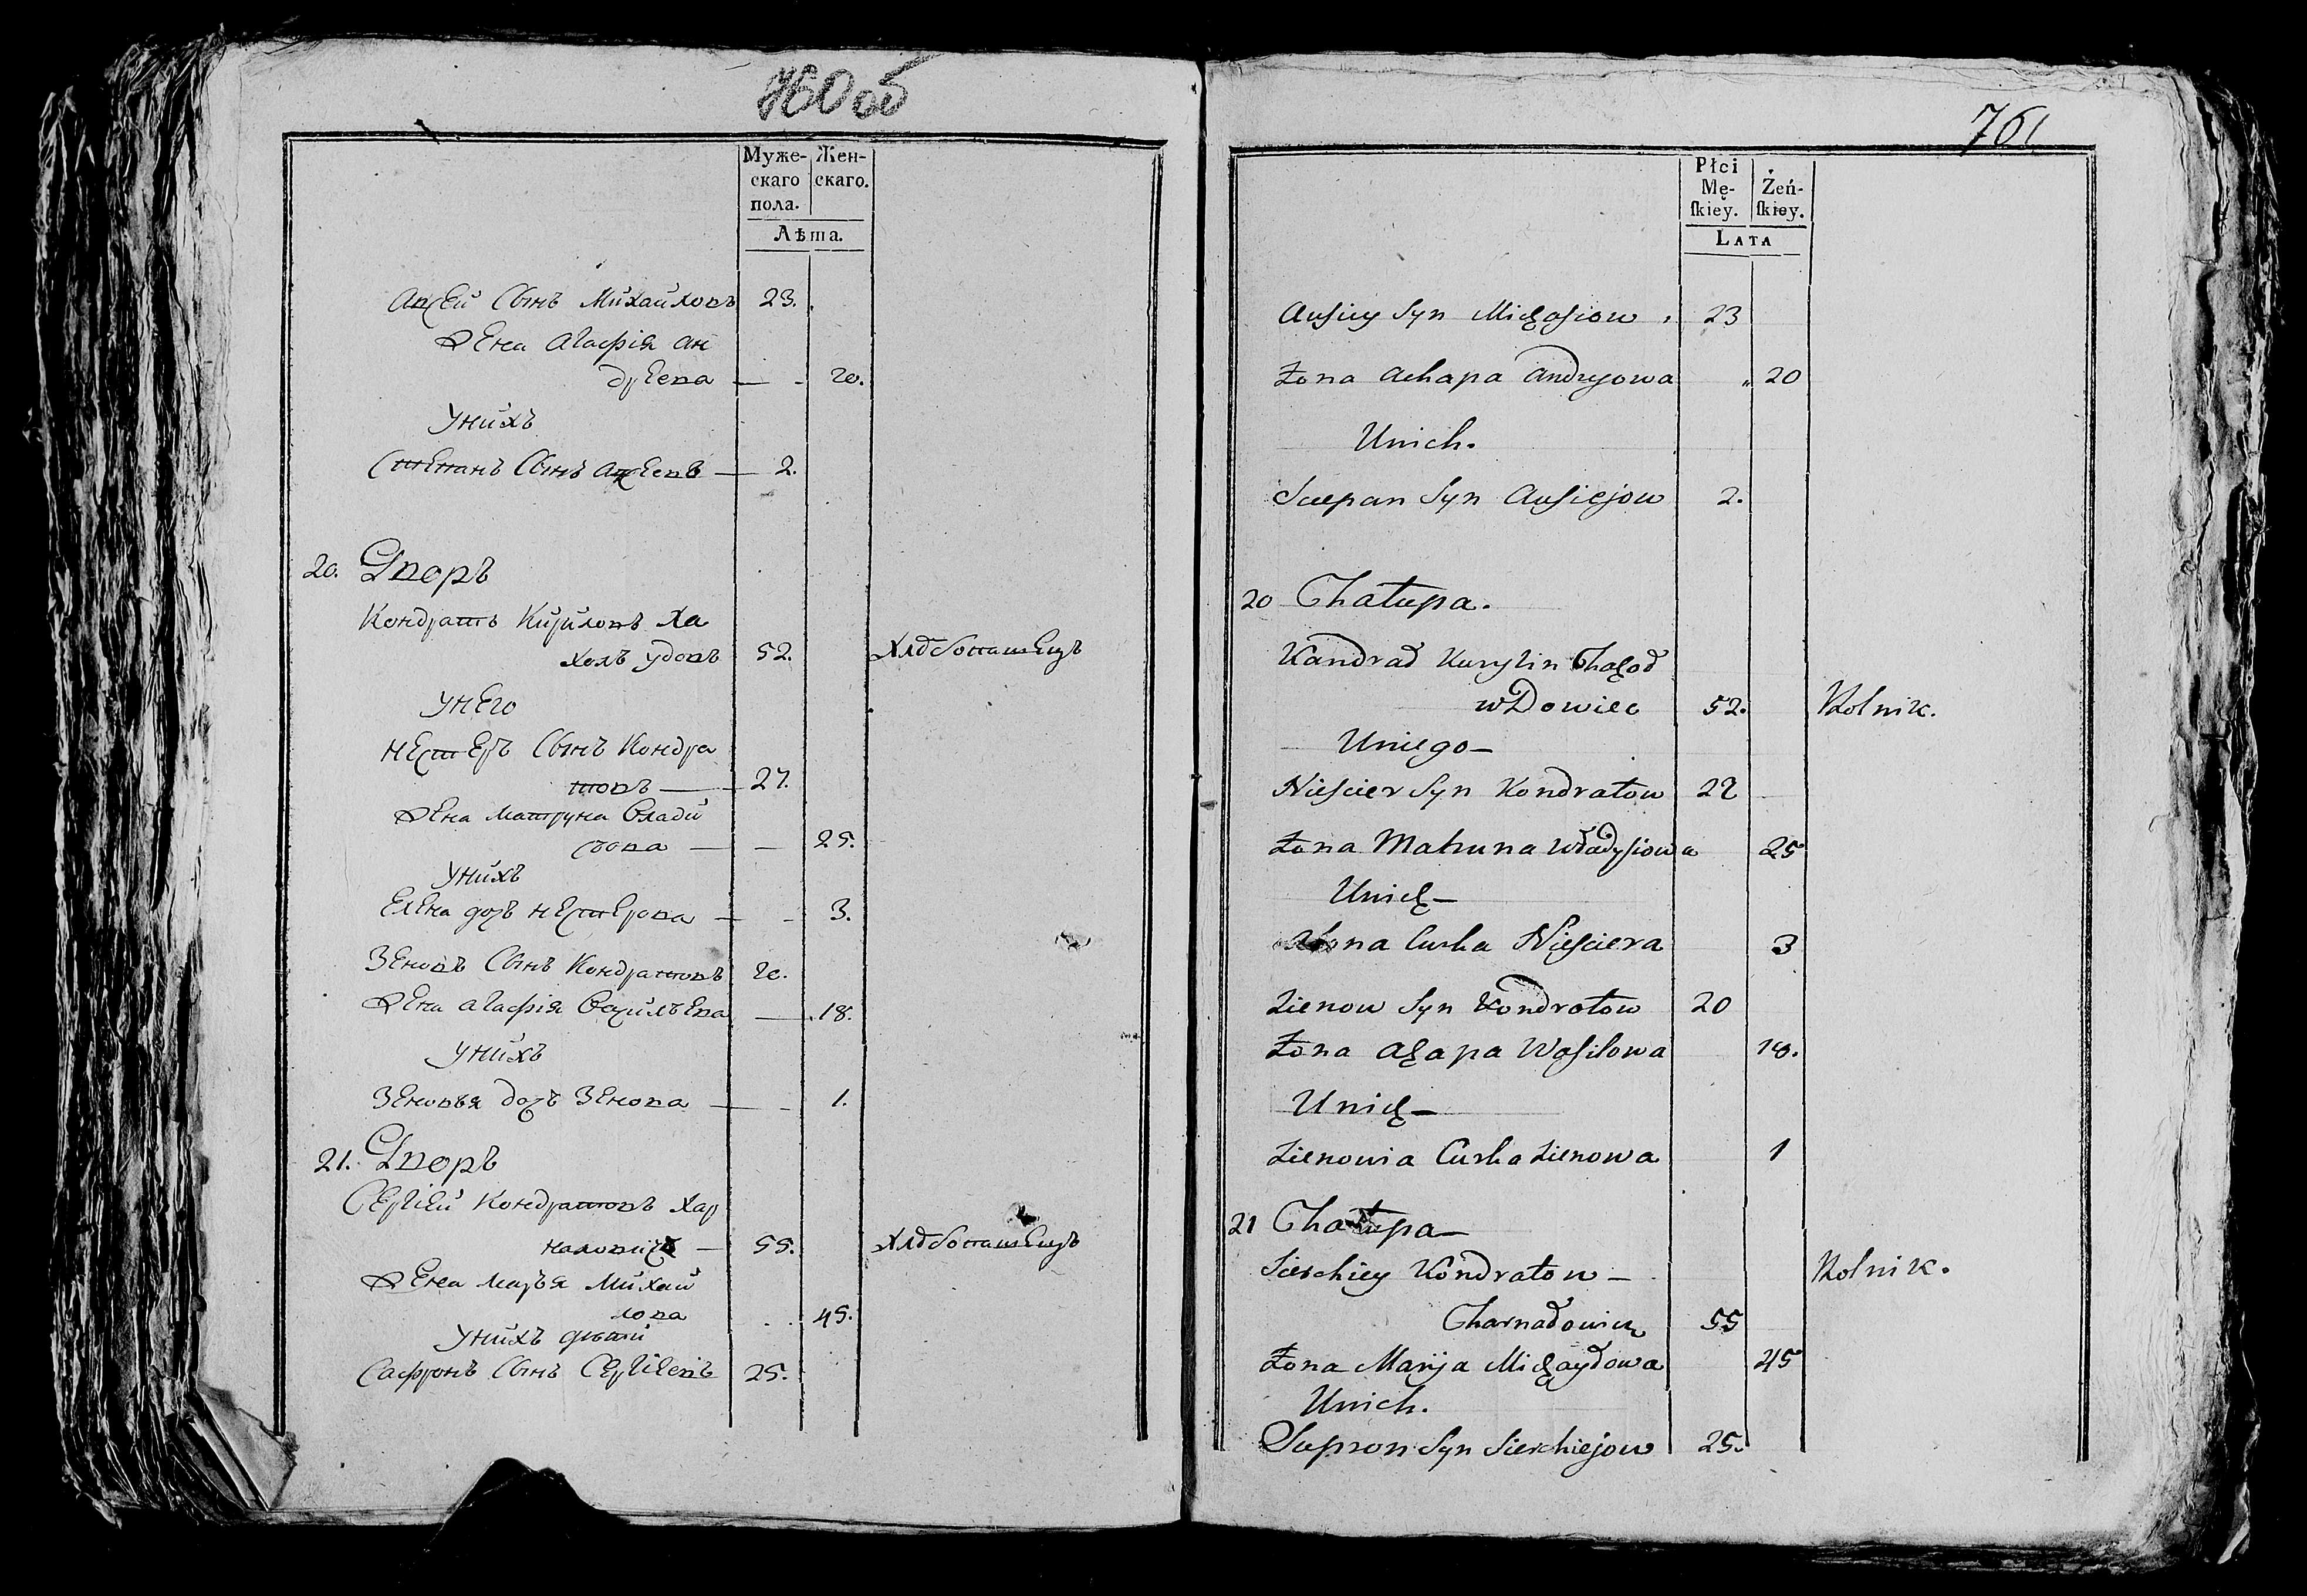 760 об
Муже-
скаго
пола.
Жен-
скаго.
Лѣта.
Авсей Сынъ Михайловъ 23.
Жена Агафія Ан
дреева — - 20.
У нихъ
Степанъ Сынъ Авсеевъ — 2.
20. Дворъ
Кондратъ Кириловъ Ха
холъ удовъ 52. Хлѣбопашецъ
У него
Нестеръ Сынъ Кондра
товъ — 27.
Жена Матруна Влади
сова — — 25.
У нихъ
Елена дочъ Нестерова — - 3.
Зеновъ Сынъ Кондратовъ 20.
Жена Агафія Василъева — 18.
У нихъ
Зеновъя дочъ Зенова — - 1.
21. Дворъ
Сергіей Кондратовъ Хар
наловичъ — 55. Хлѣбопашецъ
Жена Маръя Михай
лова . . 45.
У нихъ дѣти
Сафронъ Сынъ Сергіевъ 25.
761
Płci
Mę-
ſkiey.
Żeń-
ſkiey.
Lata
Ausiey Syn Michasiow 23
Żona Achapa Andreyowa " 20
Unich.
Sciepan Syn Ausiejow 2.
20 Chałupa.
Kandrad Kurylin Chachoł
wdowiec 52. Rolnik.
Uniego —
Niescier Syn Kondratow 27
Żona Matruna Władysiowa 25
Unich —
Curka Niesciera 3
Zienow Syn Kondratow 20
Żona Achapa Wasilowa 18.
Unich —
Zienowia Curka Zienowa 1
21 Chałupa —
Sierchiey Kondratow — Rolnik.
Charnałowicz 55
Żona Maryja Michayłowa 45
Unich.
Supron Syn Sierchiejow 25.